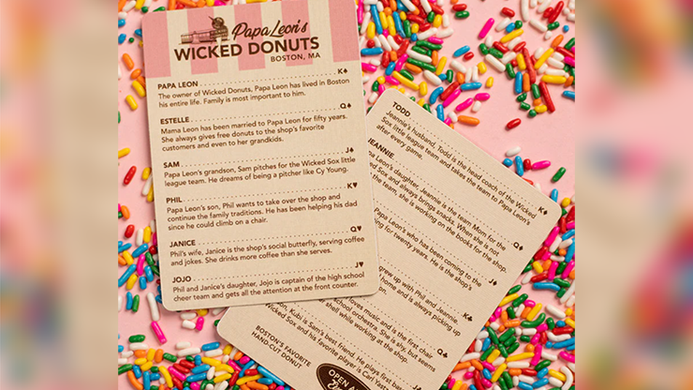 Papa Leon's
WICKED DONUTS
BOSTON, MA
PAPA LEON K♠
The owner of Wicked Donuts, Papa Leon has lived in Boston
his entire life. Family is most important to him.
ESTELLE Q♠
Mama Leon has been married to Papa Leon for fifty years.
She always gives free donuts to the shop's favorite
customers and even to her grandkids.
SAM J♠
Papa Leon's grandson, Sam pitches for the Wicked Sox little
league team. He dreams of being a pitcher like Cy Young.
PHIL K♥
Papa Leon's son, Phil wants to take over the shop and
continue the family traditions. He has been helping his dad
since he could climb on a chair.
JANICE Q♥
Phil's wife, Janice is the shop's social butterfly, serving coffee
and jokes. She drinks more coffee than she serves.
JOJO J♥
Phil and Janice's daughter, Jojo is captain of the high school
cheer team and gets all the attention at the front counter.
TODD K♦
Jeannie's husband, Todd is the head coach of the Wicked
Sox little league team and takes the team to Papa Leon's
after every game.
JEANNIE Q♦
Leon's daughter, Jeannie is the team Mom for the
Sox and always brings snacks. When she is not
the team, she is working on the books for the shop.
J♦
Leon's who has been coming to the
for twenty years. He is the shop's
K♣
grew up with Phil and Jeannie.
home and is always picking up
Q♣
loves music and is the first chair
school orchestra. She is shy, but seem
shelf while working at the shop.
Kubi is Sam's best friend. He plays first
Wicked Sox and his favorite player is Carl
BOSTON'S FAVORITE
HAND-CUT DONUT
OPEN